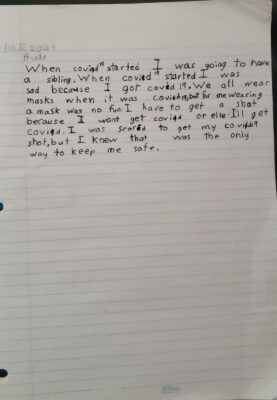 Huda
When covid19 started I was going to have
a sibling. When covid19 started I was
sad because I got covid 19. We all wear
masks when it was covid19, but for me wearing
a mask was no fun. I have to get a shot
because I wont get covid19 or else I'll get
Covid19. I was scared to get my covid19
shot, but I knew that was the only
way to keep me safe.